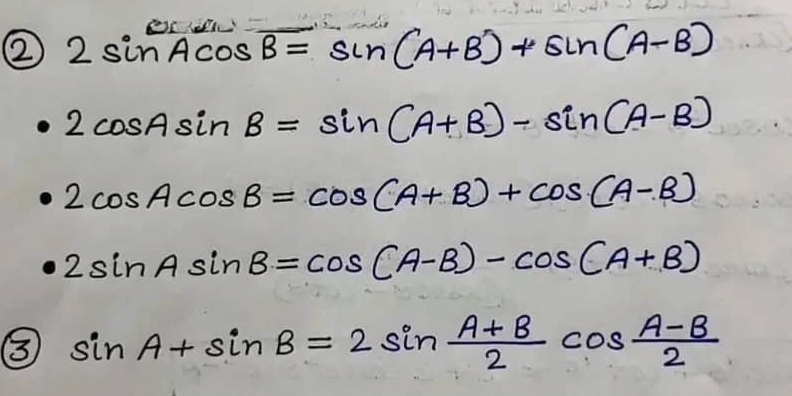 ② 2 sin A cos B = sin (A+B) + sin (A-B)
• 2 cos A sin B = sin (A+B) - sin (A-B)
• 2 cos A cos B = cos (A+B) + cos (A-B)
• 2 sin A sin B = cos (A-B) - cos (A+B)
③ sin A + sin B = 2 sin (A+B)/2 cos (A-B)/2